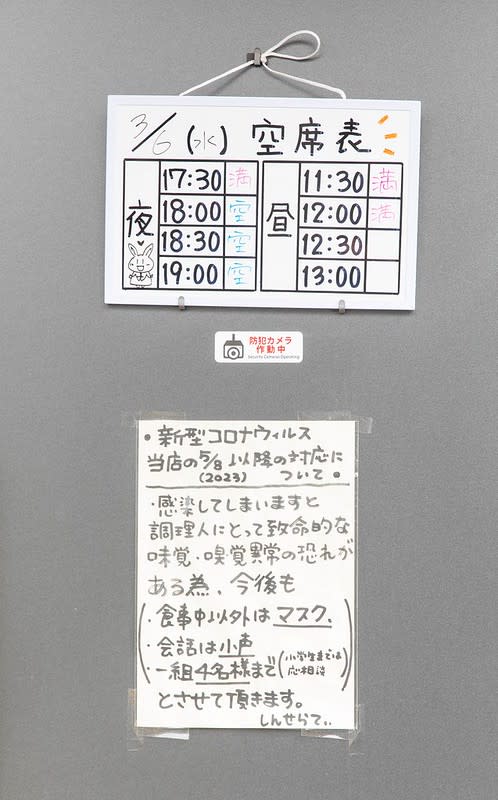 3/6 (水) 空席表
夜
17:30 満
18:00 空
18:30 空
19:00 空
昼
11:30 満
12:00 満
12:30
13:00
防犯カメラ
作動中
Security Cameras Operating
・新型コロナウィルス
当店の5/8以降の対応に
(2023) ついて。
・感染してしまいますと
調理人にとって致命的な
味覚・嗅覚異常の恐れが
ある為、今後も
・食事中以外はマスク、
・会話は小声
・一組4名様まで(小学生までは応相談)
とさせて頂きます。
しんせらてぃ